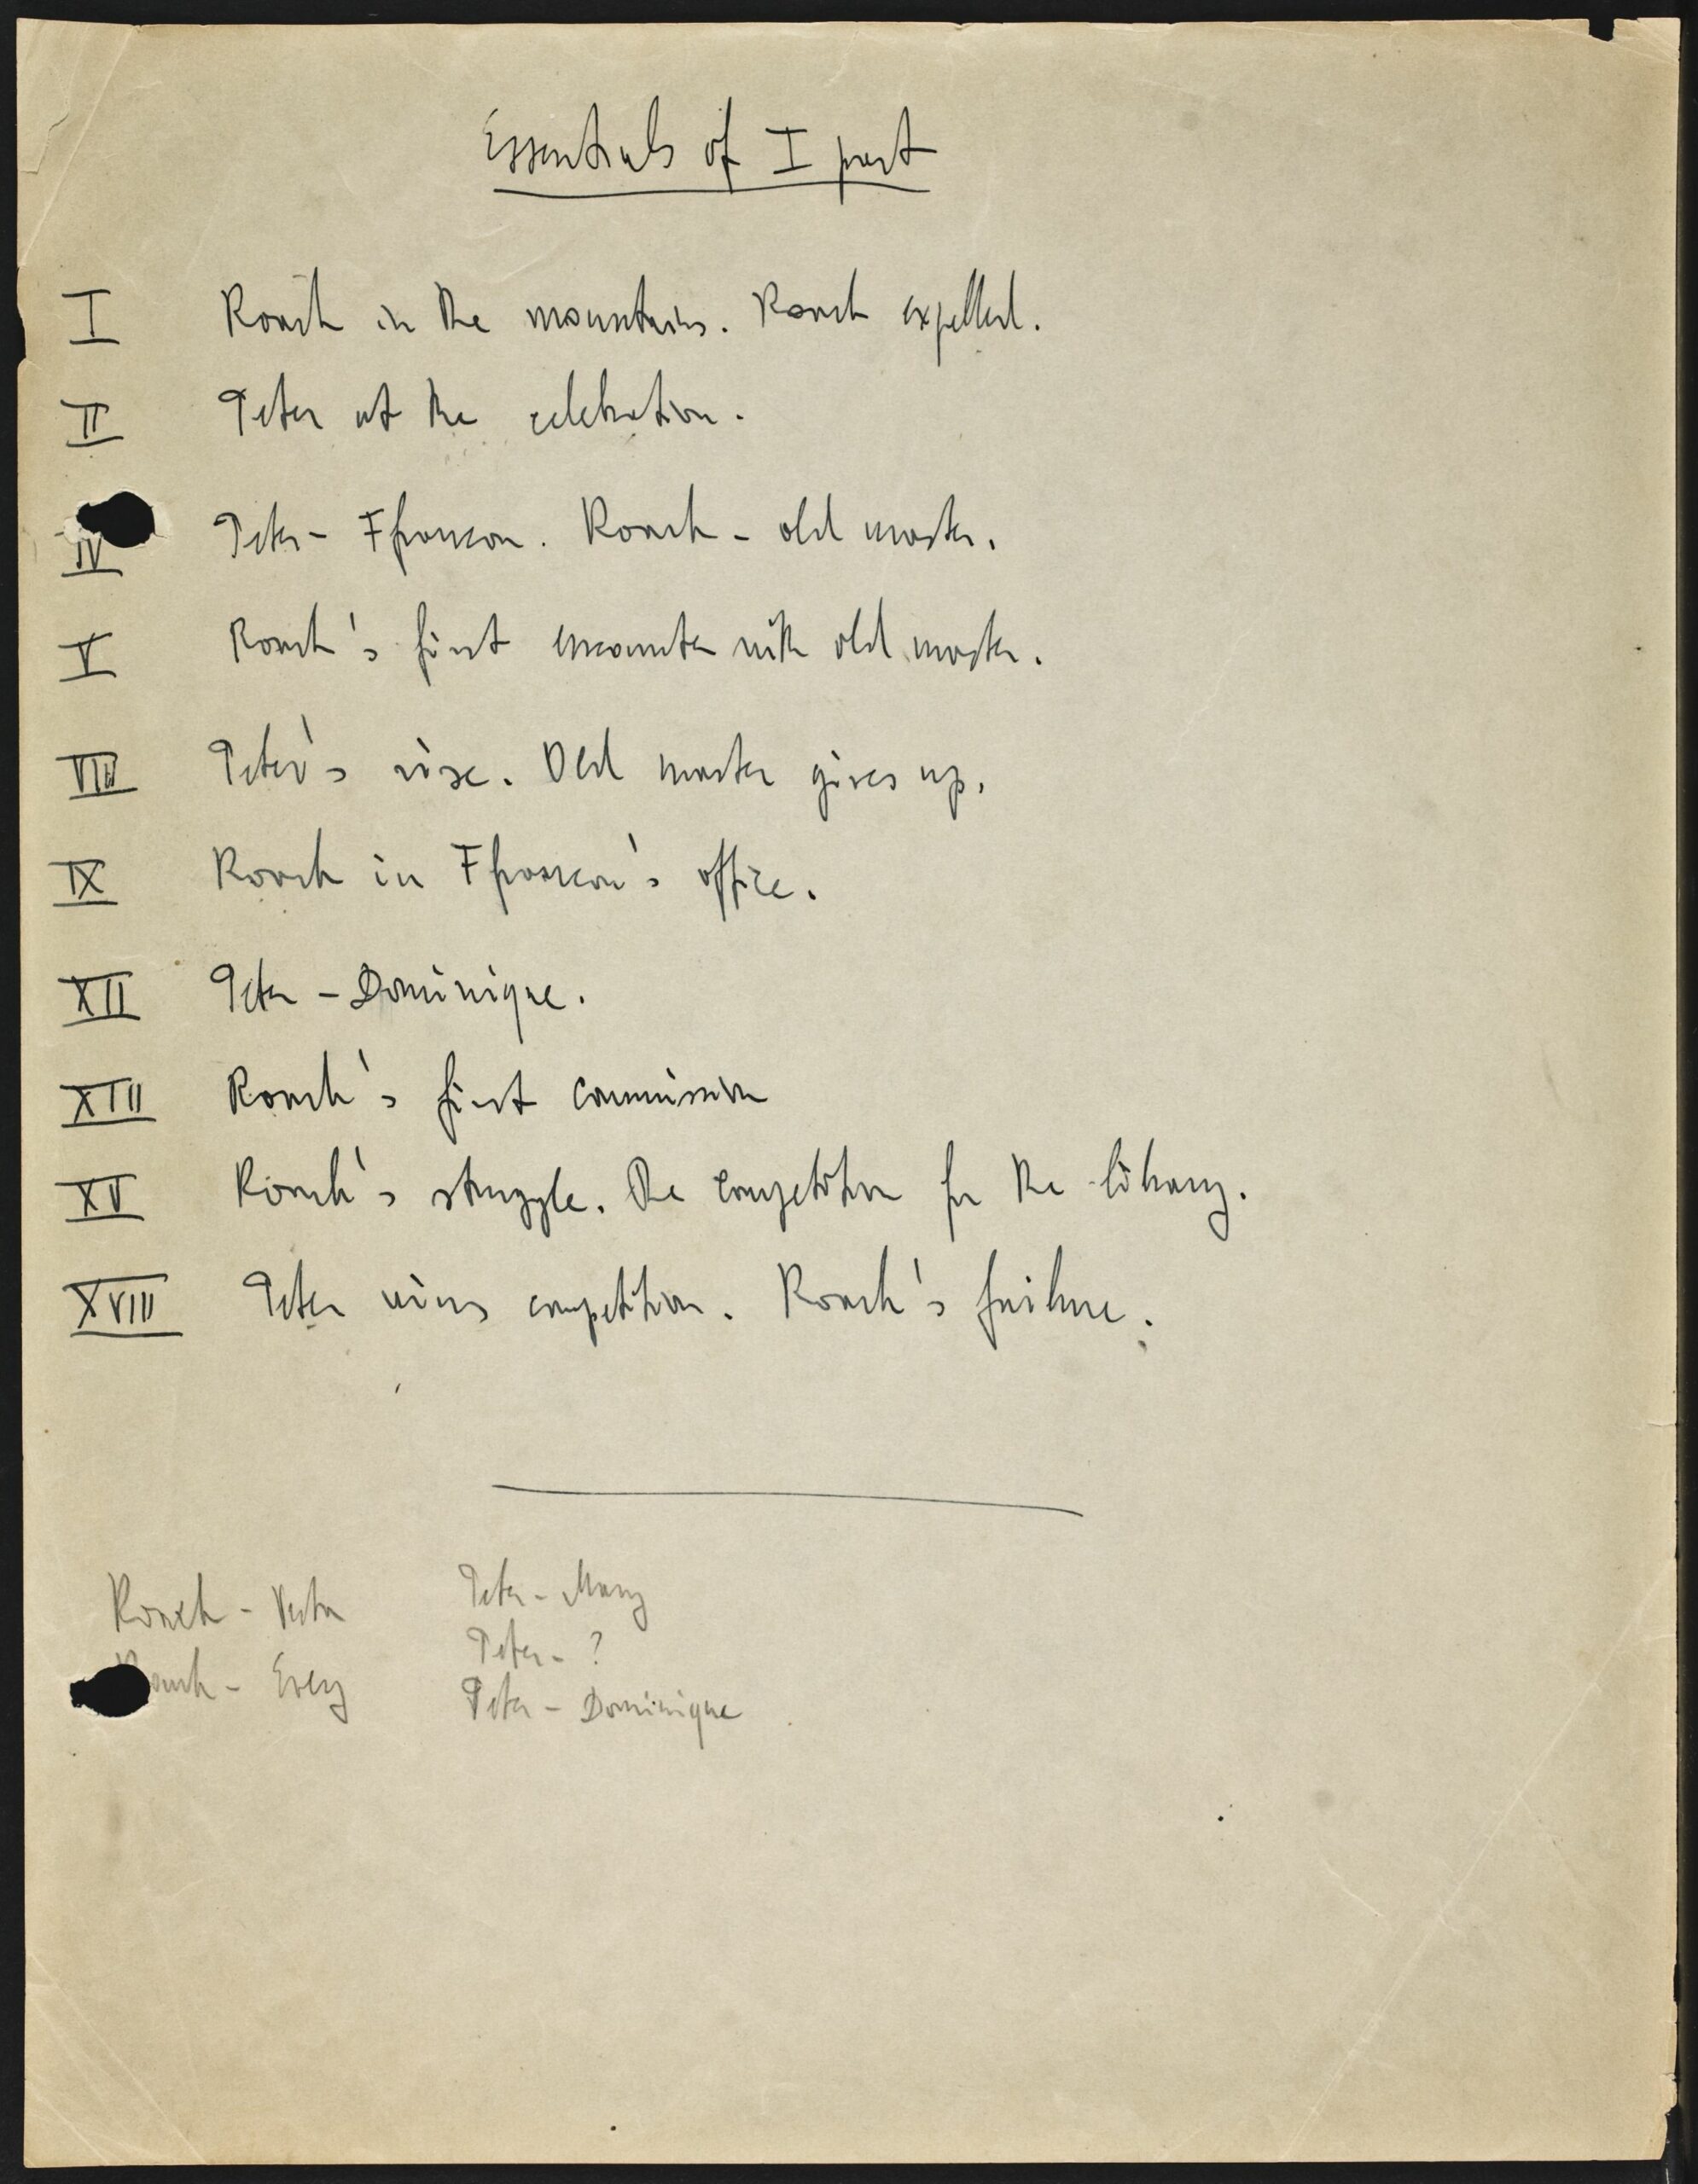 Essentials of I part
I Roark in the mountains. Roark expelled.
II Peter at the celebration.
IV Peter - Ffrancon. Roark - old master.
V Roark's first encounter with old master.
VIII Peter's rise. Old master gives up.
IX Roark in Ffrancon's office.
XII Peter - Dominique.
XIII Roark's first commission
XV Roark's struggle. The competition for the library.
XVIII Peter wins competition. Roark's failure.
Roark - Vesta Peter - Mary
Peter - ?
Roark - Every
Peter - Dominique